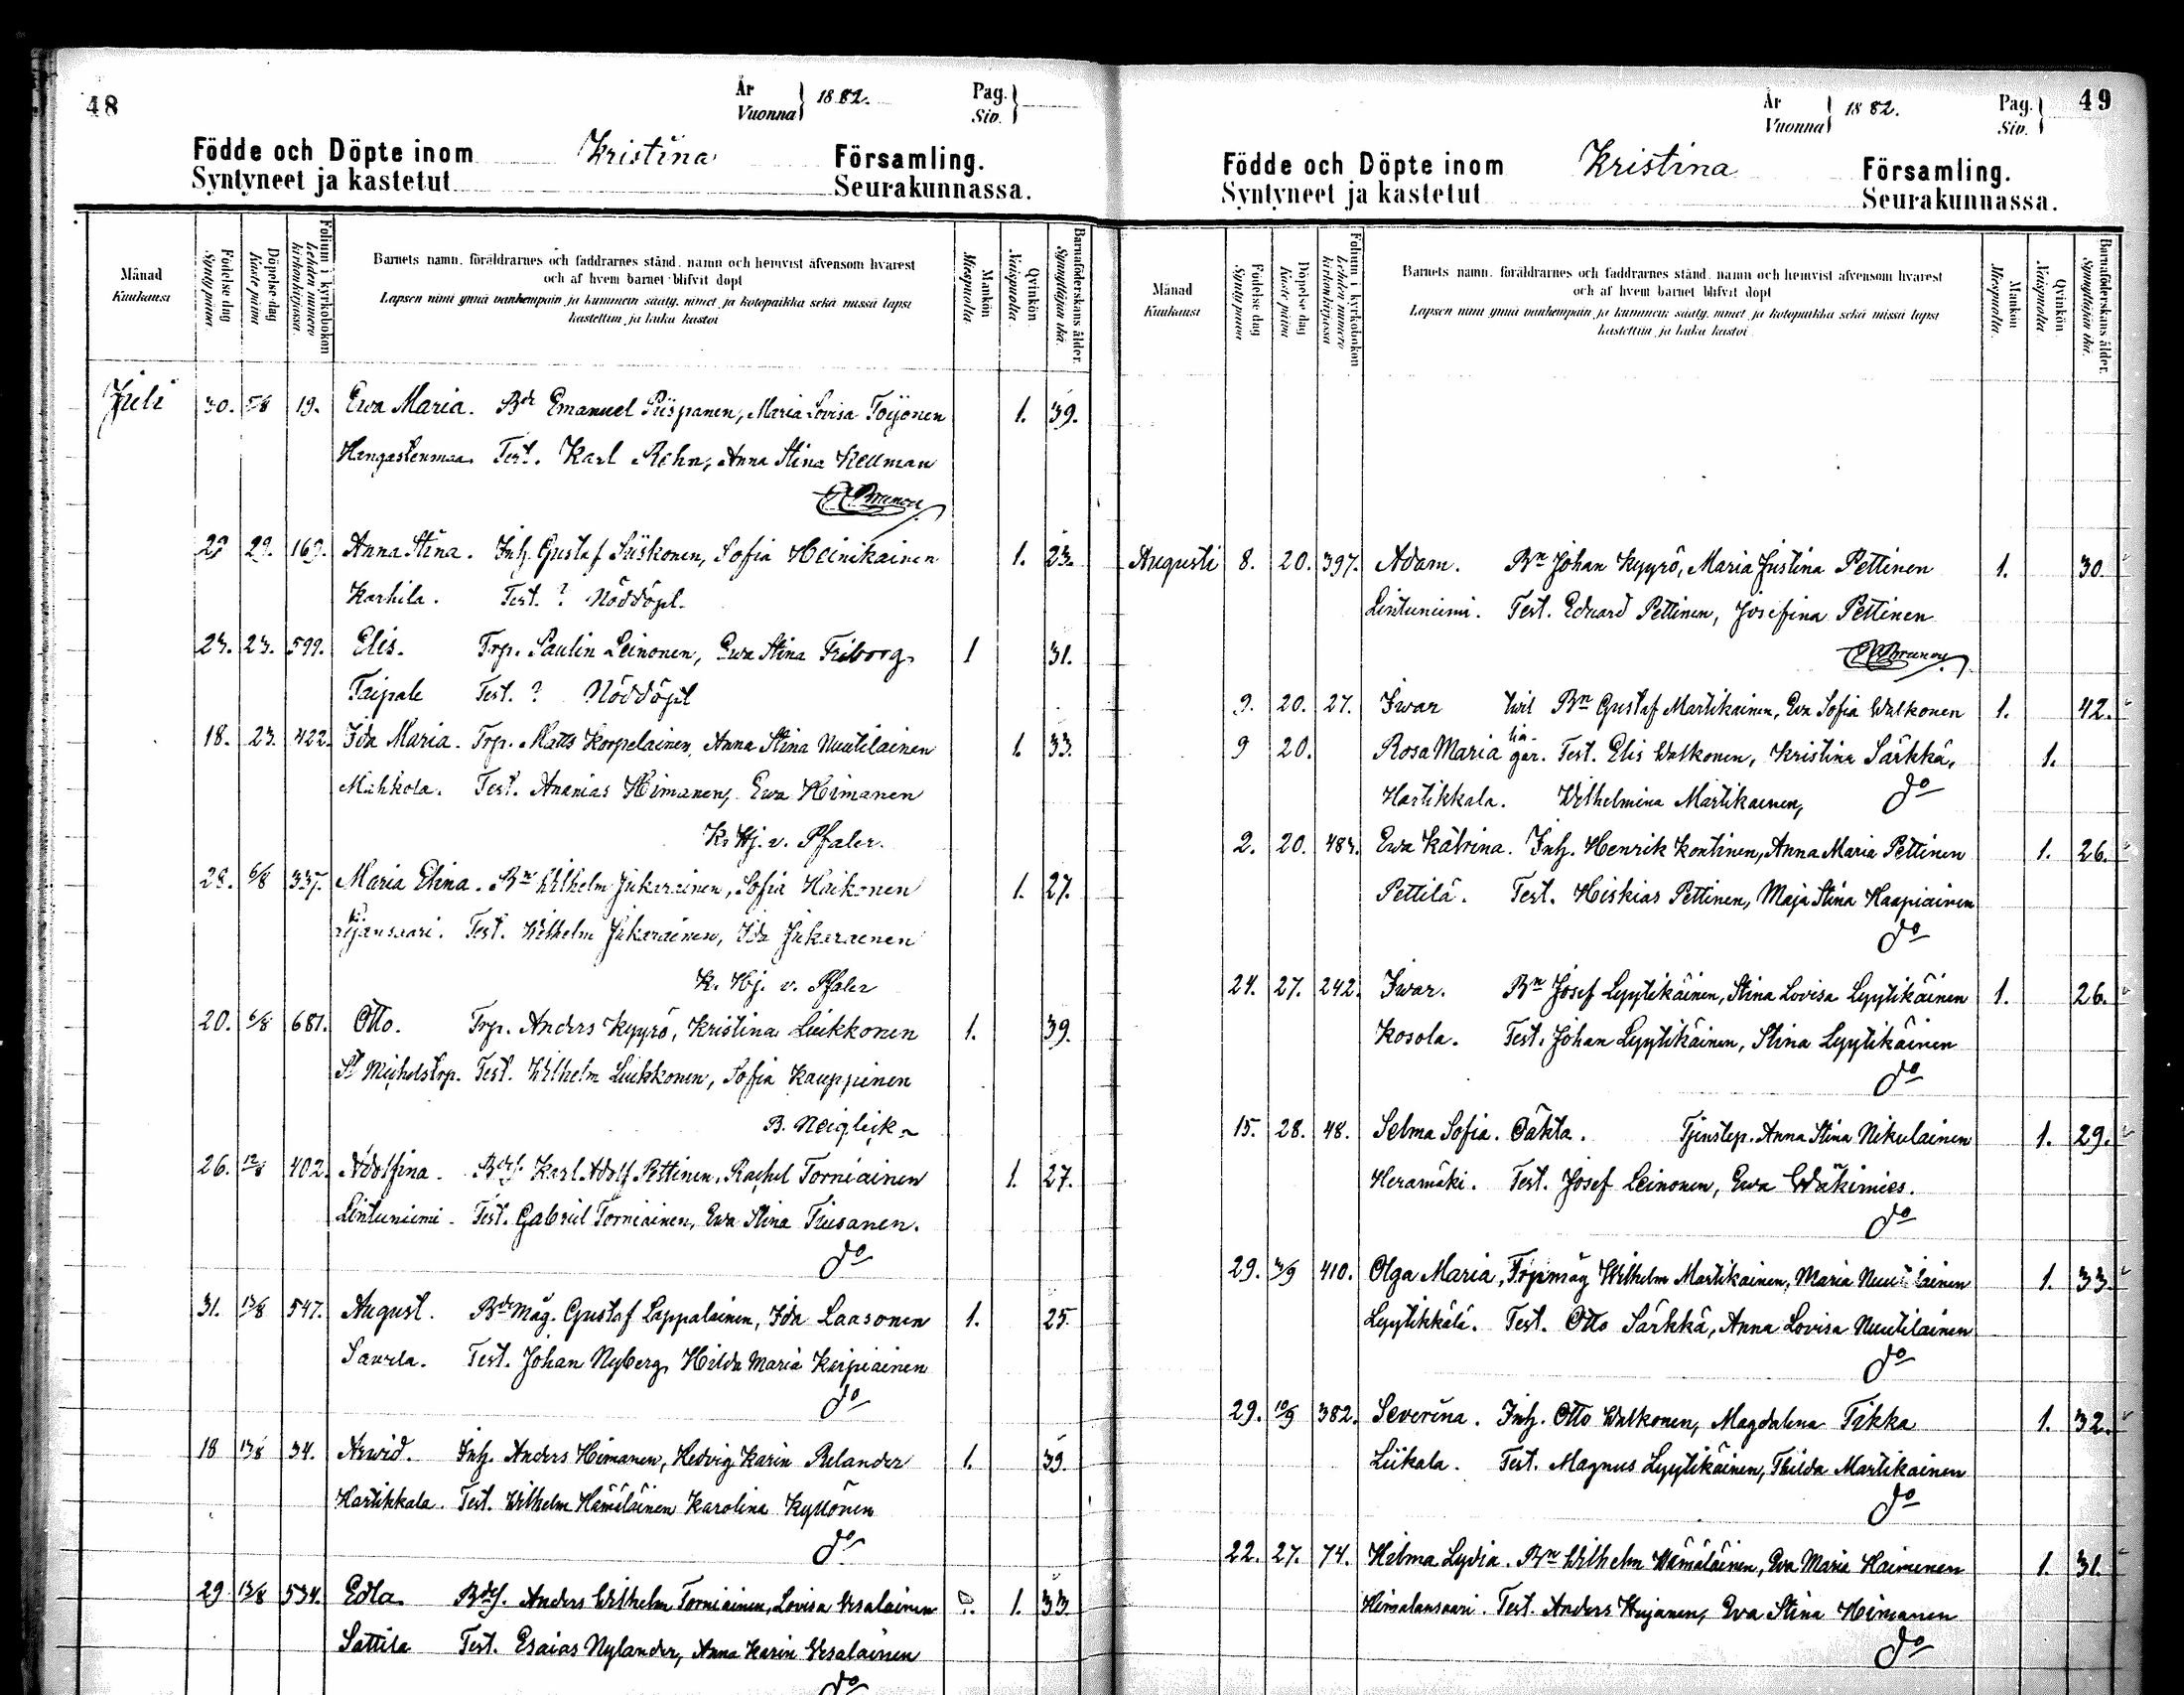 48
År
Vuonna
1882.
Pag.
Siv.
Födde och Döpte inom Kristina Församling.
Syntyneet ja kastetut Seurakunnassa.
Månad
Kuukausi
Födelse dag
Synty päivä
Döpelse dag
Kaste päivä
Folium i kyrkoboken
Lehden numero kirkonkirjassa.
Barnets namn, föräldrarnes och faddrarnes stånd, namn och hemvist äfvensom hvarest
och af hvem barnet blifvit döpt
Lapsen nimi ynnä vanhempain ja kummein sääty, nimet ja kotopaikka sekä missä lapsi
kastettiin ja kuka kastoi
Mankön
Miespuolia
Qvinkön
Naispuolia.
Barnaföderskans ålder.
Synnyttäjän ikä.
Juli 30. 5/8 19. Ewa Maria. Emanuel Piispanen, Maria Lovisa Toijonen 1. 39.
Hangastenmaa Test. Karl Rehn, Anna Stina Kellman
29 29. 169. Anna Stina. Inh. Gustaf Siiskonen, Sofia Heinikainen 1. 23.
Karhila. Test. ? Nöddöpt.
23. 23. 599. Elis. Trp. Paulin Leinonen, Ewa Stina Friborg. 1 31.
Taipale Test. ? Nöddöpt
18. 23. 422. Ida Maria. Trp. Matts Korpelainen, Anna Stina Nuutilainen 1. 33.
Mahkola. Test. Ananias Himanen, Ewa Himanen
K. Hj. v. Pfaler.
28. 6/8 337. Maria Elina. Bn Wilhelm Jukarainen, Sofia Haikonen 1. 27.
Test. Wilhelm Jukarainen, Ida Jukarainen
K. Hj. v. Pfaler
20. 6/8 681. Otto. Trp. Anders Kyyrö, Kristina Liukkonen 1. 39.
St Michelstrp. Test. Wilhelm Liukkonen, Sofia Kauppinen
B. Neiglick
26. 12/8 402. Adolfina. Karl Adolf Pettinen, Rachel Torniainen 1. 27.
Lintuniemi. Test. Gabriel Torniainen, Ewa Stina Tiusanen.
do
31. 13/8 547. August. Bdemåg. Gustaf Lappalainen, Ida Laasonen 1. 25.
Saurla. Test. Johan Nyberg, Hilda Maria Karpiainen
do
18 13/8 34. Arwid. Inh. Anders Himanen, Hedvig Karin Relander 1. 39.
Hartikkala. Test. Wilhelm Hämäläinen Karolina Kyllönen
do
29 13/8 534. Edla. Anders Wilhelm Torniainen, Lovisa Wesalainen 1. 33.
Sattila Test. Esaias Nylander, Anna Karin Wesalainen
do
49
År
Vuonna
1882.
Pag.
Siv.
Födde och Döpte inom Kristina Församling.
Syntyneet ja kastetut Seurakunnassa.
Månad
Kuukausi
Födelse dag
Synty päivä
Döpelse dag
Kaste päivä
Folium i kyrkoboken
Lehden numero kirkonkirjassa
Barnets namn, föräldrarnes och faddrarnes stånd, namn och hemvist äfvensom hvarest
och af hvem barnet blifvit döpt
Lapsen nimi ynnä vanhempain ja kummein sääty, nimet ja kotopaikka sekä missä lapsi
kastettiin ja kuka kastoi
Mankön
Miespuolia.
Qvinkön.
Naispuolia.
Barnaföderskans ålder.
Synnyttäjän ikä.
Augusti 8. 20. 397. Adam. Bn Johan Kyyrö, Maria Justina Pettinen 1. 30.
Lintuniemi. Test. Eduard Pettinen, Josefina Pettinen
9. 20. 27. Iwar Bn Gustaf Martikainen, Eva Sofia Walkonen 1. 42.
9 20. Rosa Maria Test. Elis Walkonen, Kristina Särkkä, 1.
Hartikkala. Wilhelmina Martikainen, do
2. 20. 483. Ewa Katrina. Inh. Henrik Kontinen, Anna Maria Pettinen 1. 26.
Pettilä. Test. Hiskias Pettinen, Maja Stina Haapiainen
do
24. 27. 242. Iwar. Bn Josef Lyytikäinen, Stina Lovisa Lyytikäinen 1. 26.
Kosola. Test. Johan Lyytikäinen, Stina Lyytikäinen
do
15. 28. 48. Selma Sofia. Oäkta. Tjenstep. Anna Stina Nikulainen 1. 29.
Heramäki. Test. Josef Leinonen, Ewa Wäkimies.
do
29. 3/9 410. Olga Maria, Trpmåg Wilhelm Martikainen, Maria Nuutilainen 1. 33.
Lyytikkälä. Test. Otto Särkkä, Anna Lovisa Nuutilainen
do
29. 10/9 382. Severina. Inh. Otto Walkonen, Magdalena Tikka 1. 32.
Liikala. Test. Magnus Lyytikäinen, Thilda Martikainen
do
22. 27. 74. Hilma Lydia. Bn Wilhelm Hämäläinen, Eva Maria Haimenen 1. 31.
Himalansaari. Test. Anders Hujanen, Eva Stina Himanen
do